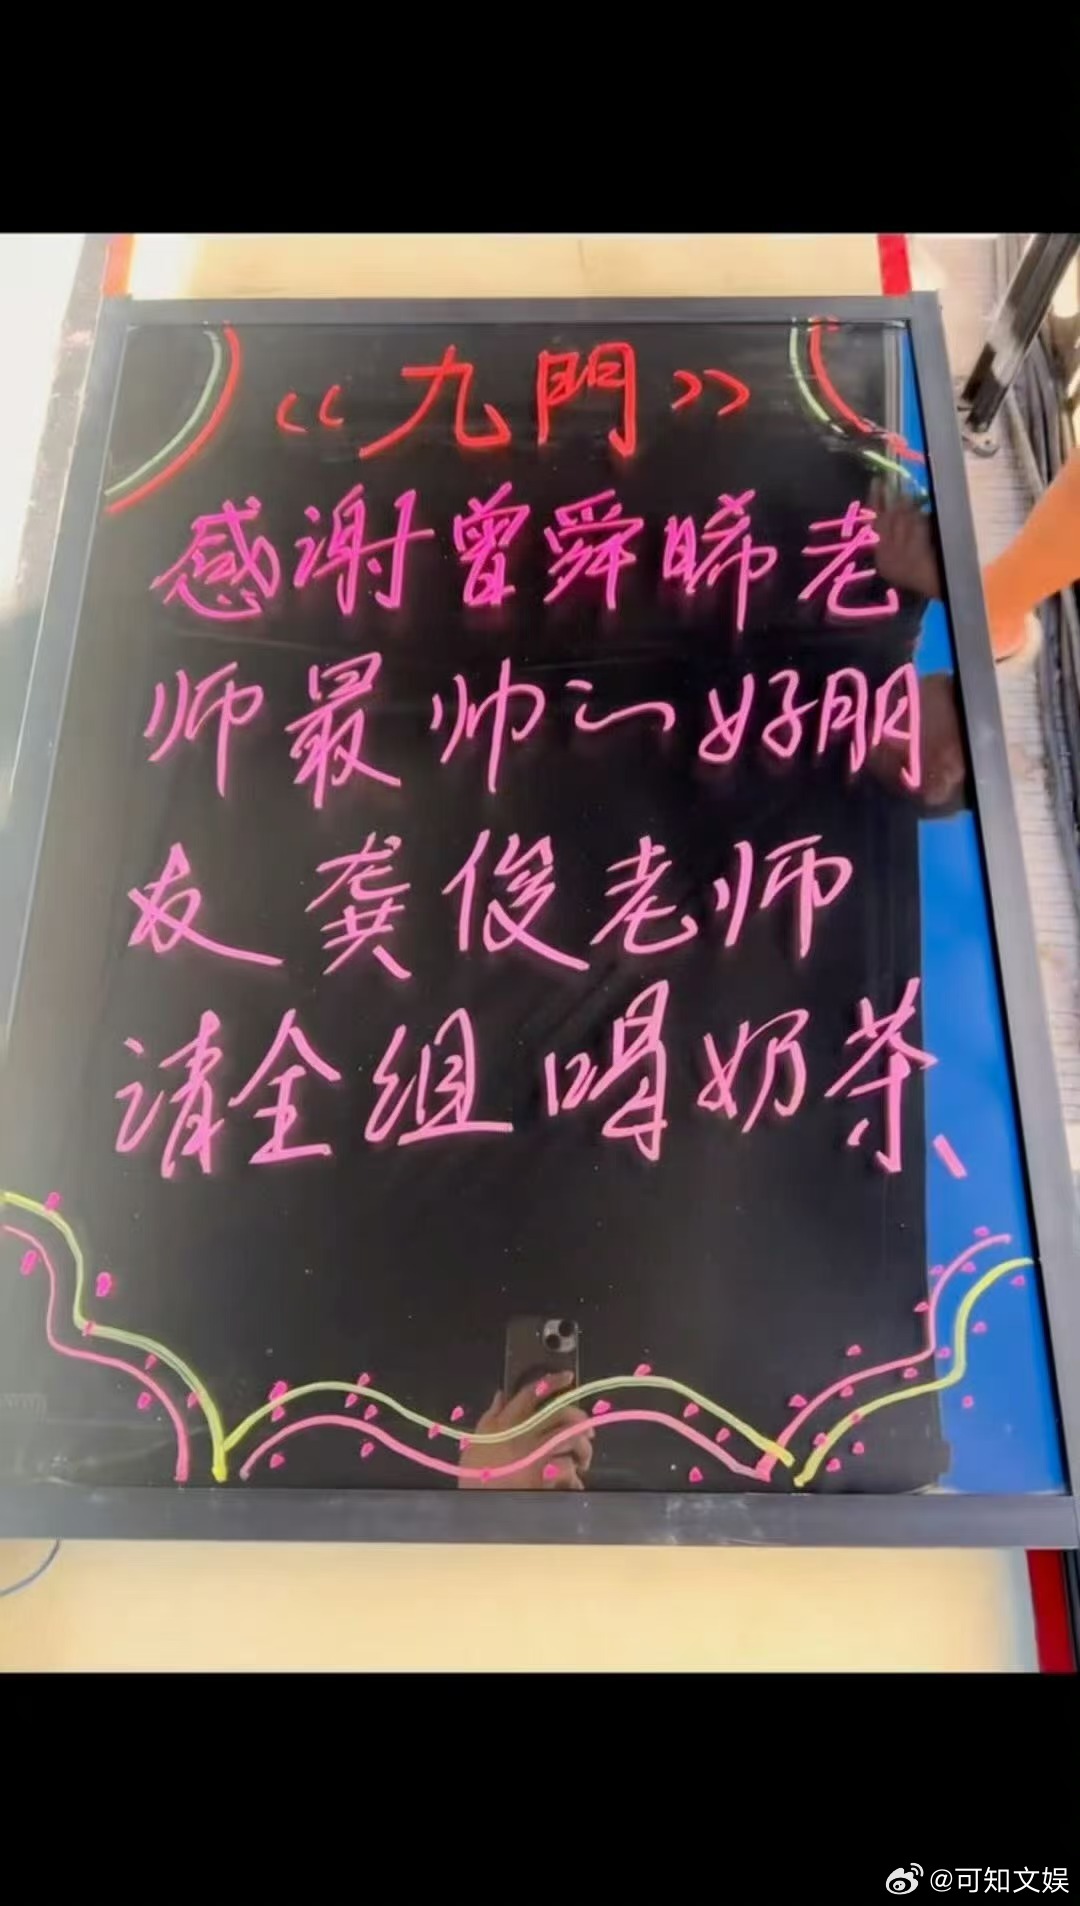 《九門》
感谢曾舜晞老
师最帅的好朋
友龚俊老师
请全组喝奶茶、
@可知文娱